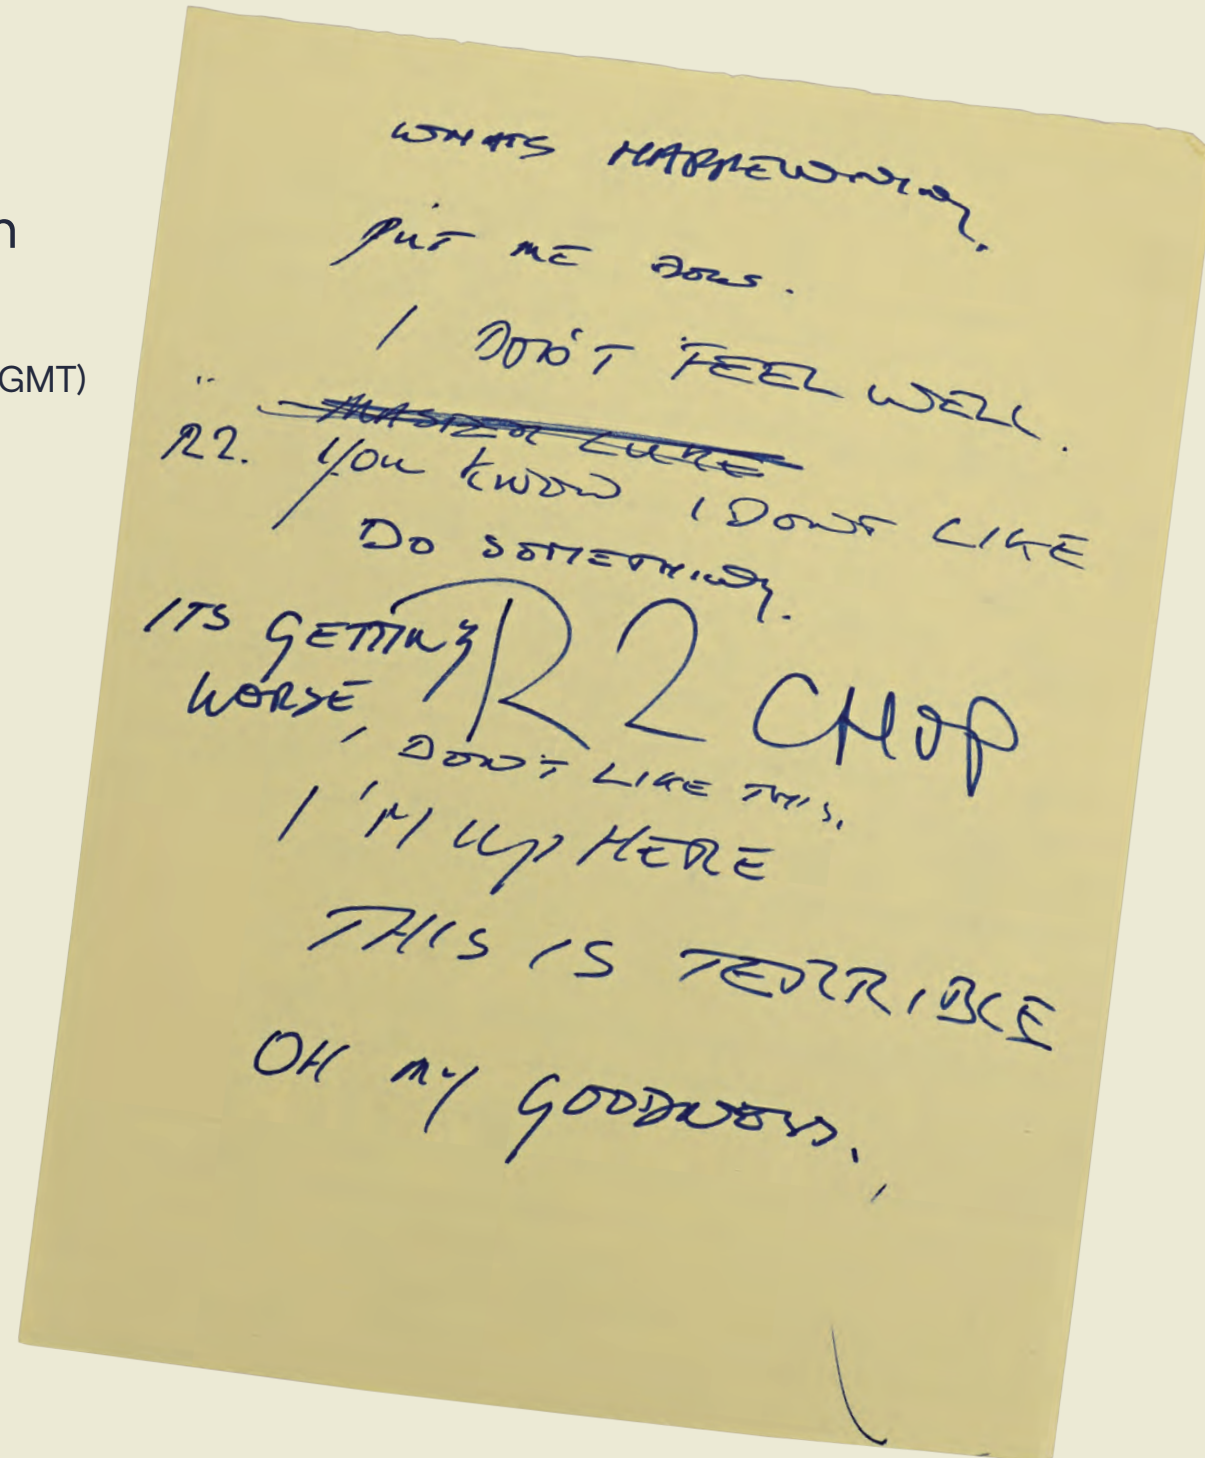 n
GMT)
WHATS HAPPENING.
PUT ME DOWN.
I DON'T FEEL WELL.
MASTER LUKE
R2. YOU KNOW I DONT LIKE
DO SOMETHING.
ITS GETTING
WORSE,
R2 CHOP
I DON'T LIKE THIS.
I'M UP HERE
THIS IS TERRIBLE
OH MY GOODNESS.